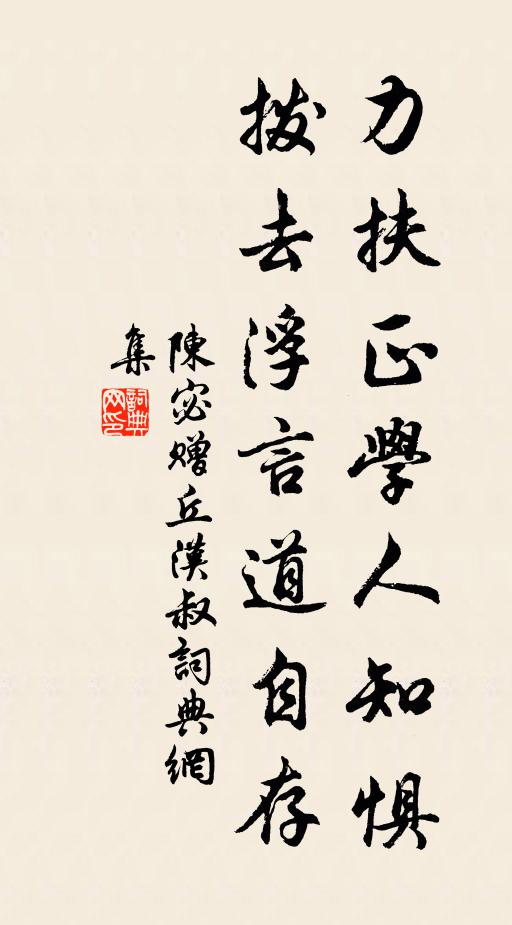 力扶正學人知懼
拨去浮言道自存
陳宓赠丘漢叔詞典網
集
詞典
网印